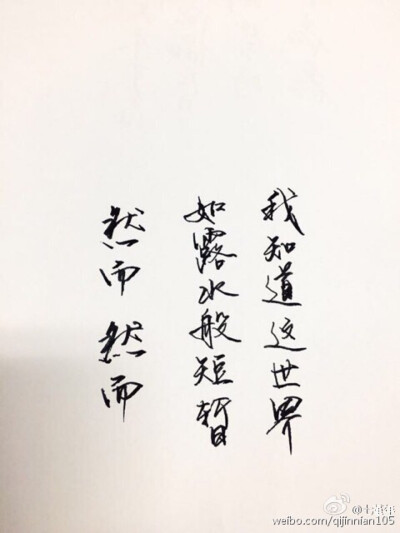 我知道这世界
如露水般短暂
然而 然而
weibo.com/qijinnian105